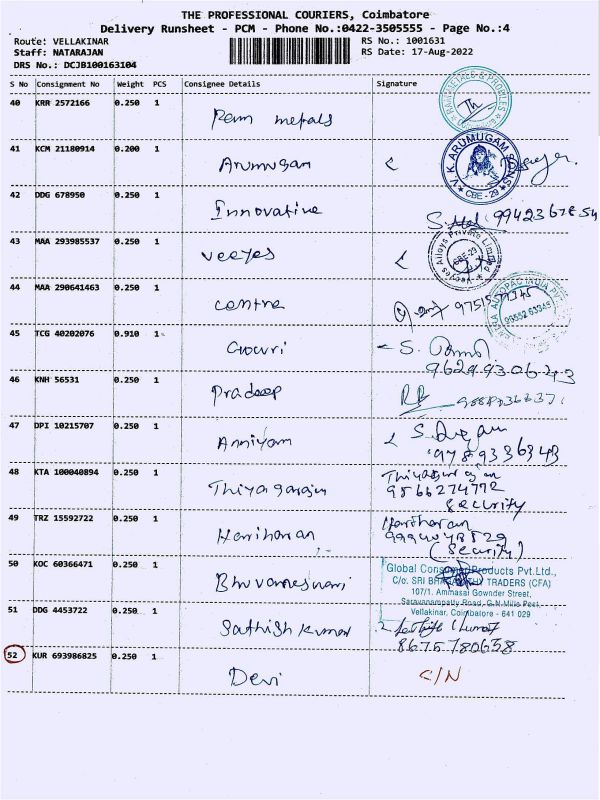 THE PROFESSIONAL COURIERS, Coimbatore
Delivery Runsheet - PCM - Phone No.:0422-3505555 - Page No.:4
Route: VELLAKINAR
RS No.: 1001631
Staff: NATARAJAN
RS Date: 17-Aug-2022
DRS No.: DCJB100163104
S No Consignment No Weight PCS Consignee Details Signature
40 KRR 2572166 0.250 1
Ram metals
41 KCM 21180914 0.200 1
Arumugam
V.K. ARUMUGAM SONS
CBE-29
42 DDG 678950 0.250 1
Innovative
43 MAA 293985537 0.250 1
Veeyes
Alloys Private Limited
CBE-29
44 MAA 290641463 0.250 1
Centra
45 TCG 40202076 0.910 1
Gowri
S.
9629930643
46 KNH 56531 0.250 1
Pradeep
47 DPI 10215707 0.250 1
Anniyam
9789336343
48 KTA 100040894 0.250 1
Thiyagarajan
9566274772
Security
49 TRZ 15592722 0.250 1
Hariharan
Hariharan
(Security)
50 KOC 60366471 0.250 1
Bhuvaneswari
Global Consumer Products Pvt.Ltd.,
C/o. SRI TRADERS (CFA)
107/1, Ammasai Gownder Street,
Saravanampatty Road, G.N.Mills Post,
Vellakinar, Coimbatore - 641 029
51 DDG 4453722 0.250 1
Sathish Kumar
8675780658
52 KUR 693986825 0.250 1
Devi
C/N